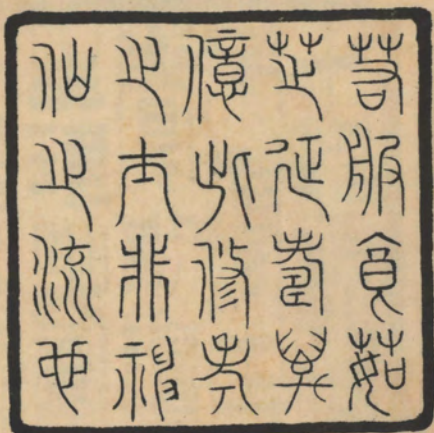 若服食茹
芝延壽萬
億此修考
之士非神
仙之流也